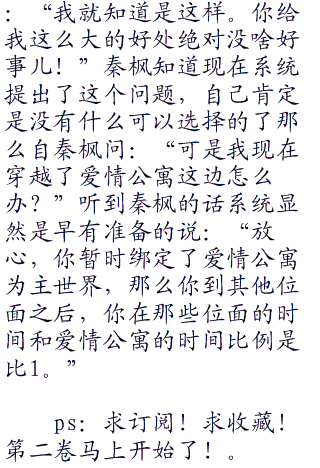 ：“我就知道是这样。你给
我这么大的好处绝对没啥好
事儿！”秦枫知道现在系统
提出了这个问题，自己肯定
是没有什么可以选择的了那
么自秦枫问：“可是我现在
穿越了爱情公寓这边怎么
办？”听到秦枫的话系统显
然是早有准备的说：“放
心，你暂时绑定了爱情公寓
为主世界，那么你到其他位
面之后，你在那些位面的时
间和爱情公寓的时间比例是
比1。”
ps：求订阅！求收藏！
第二卷马上开始了！。